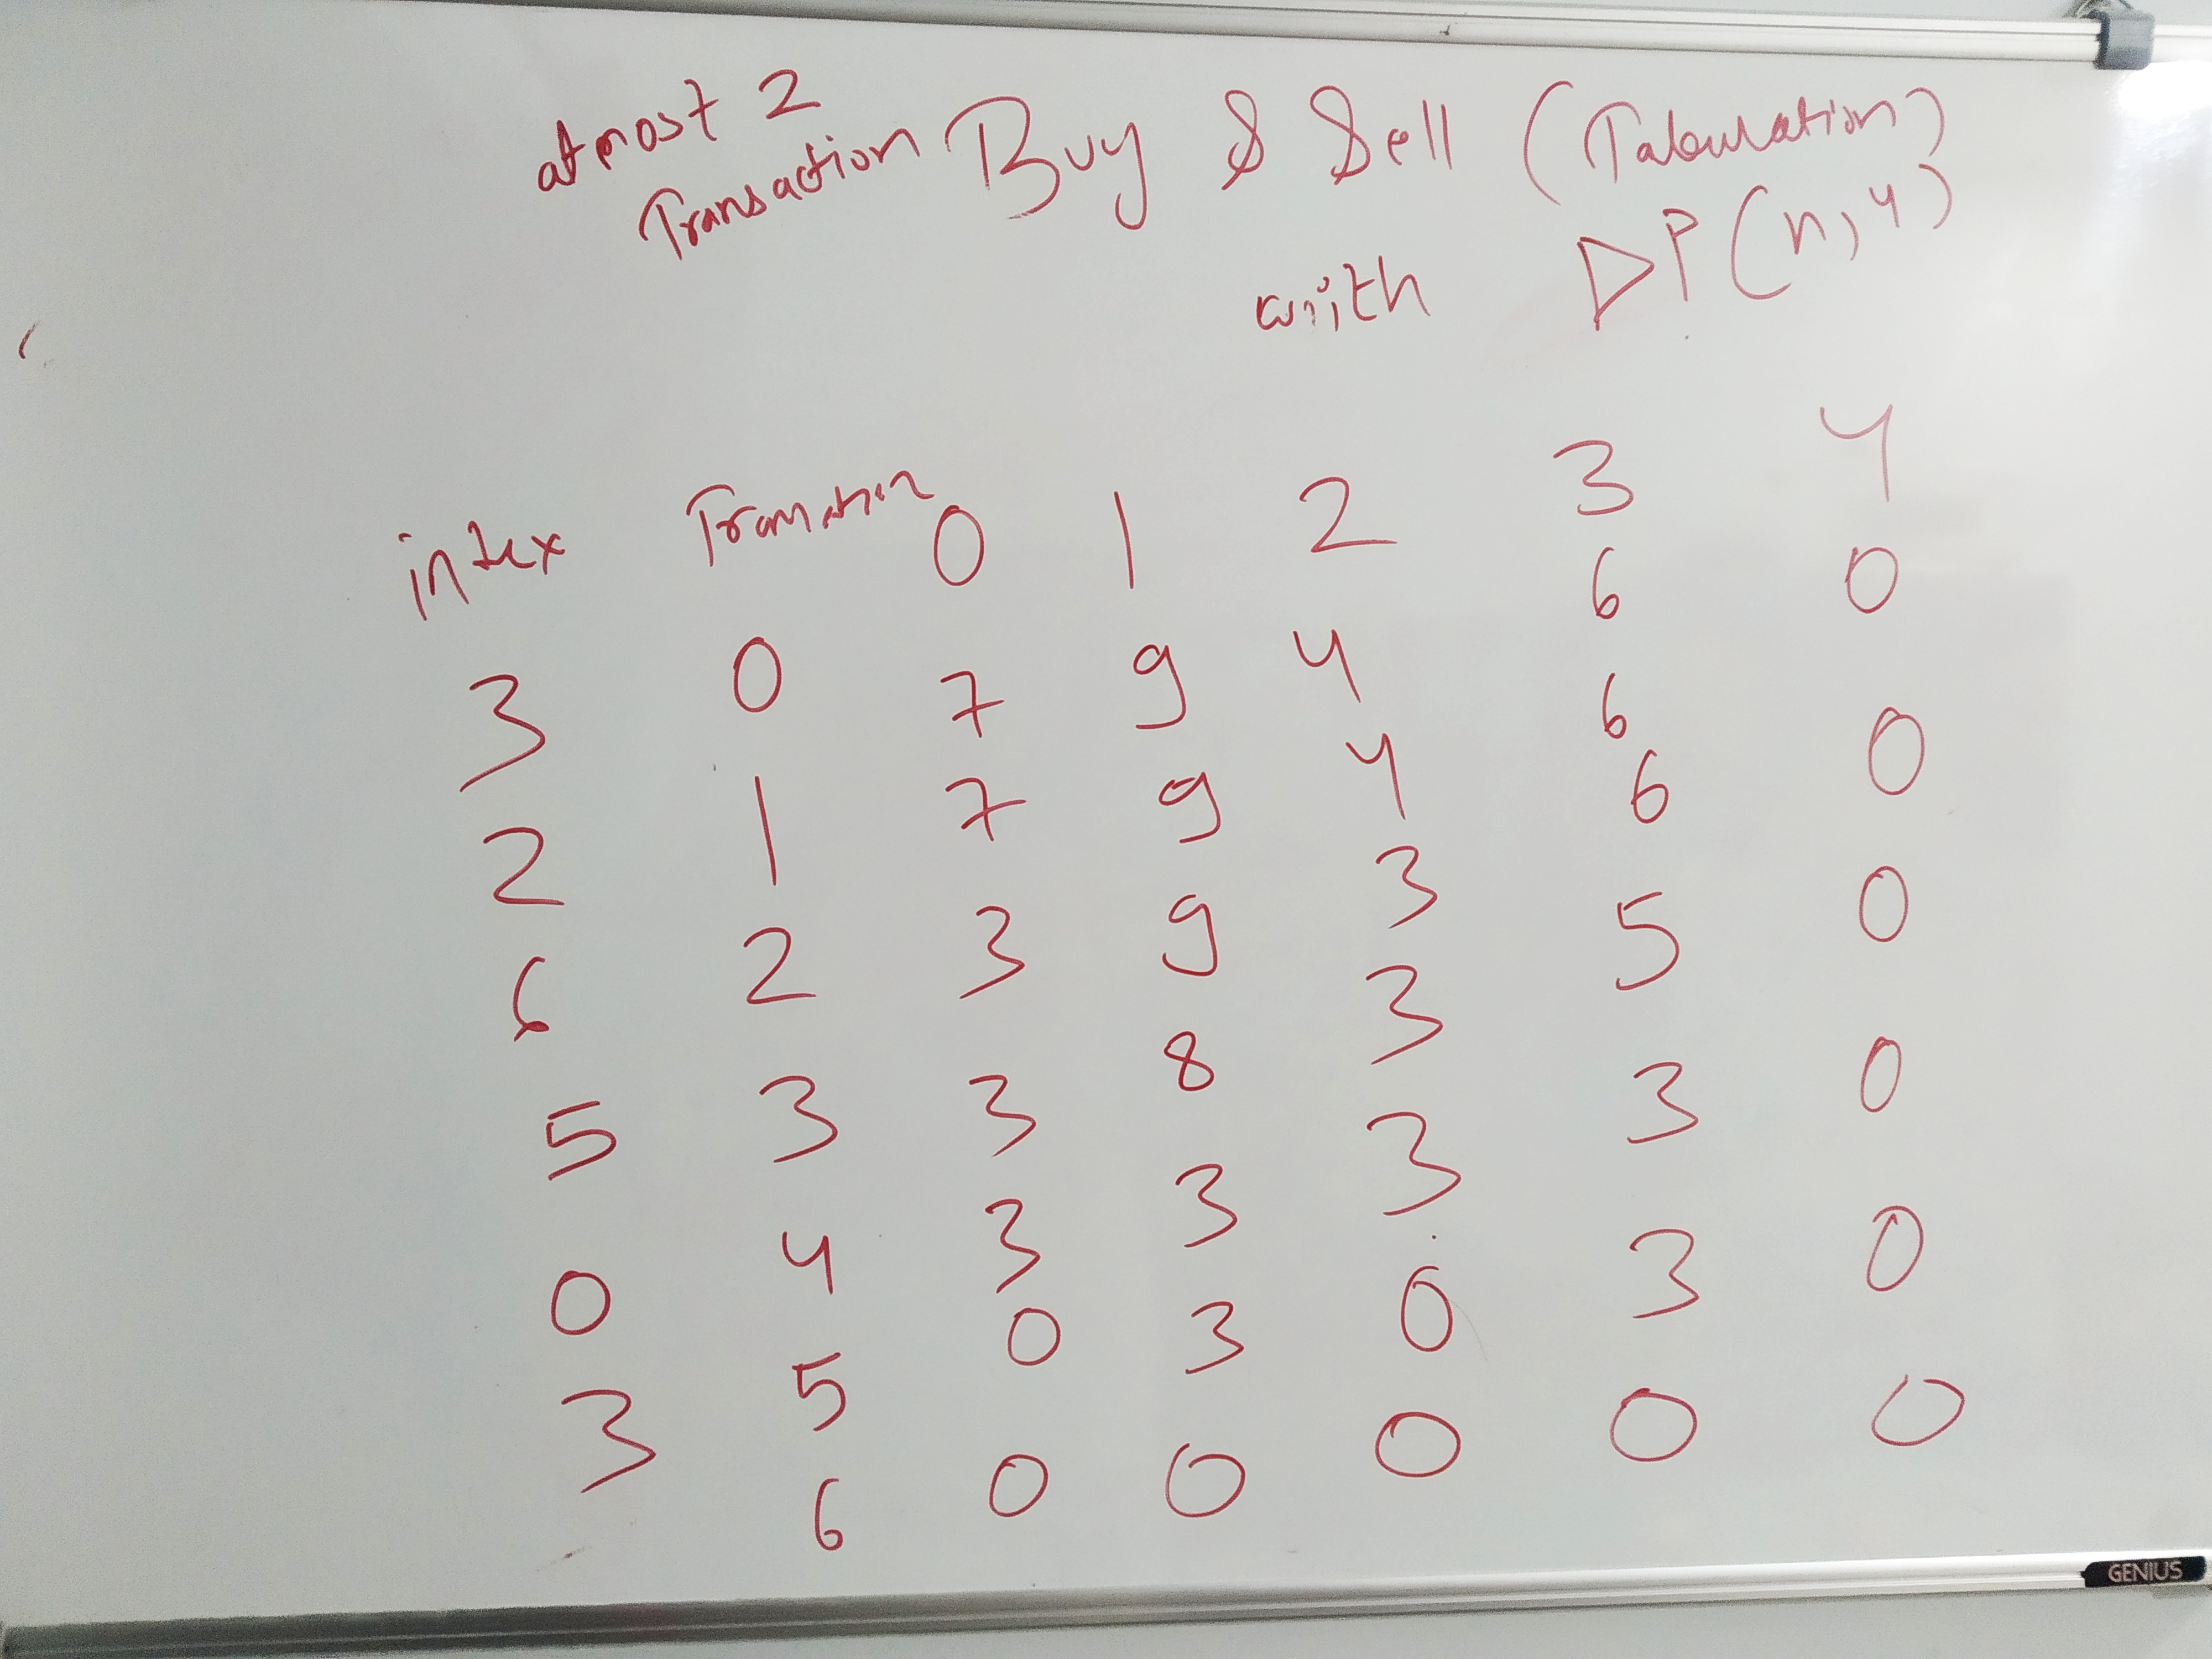 atmost 2
Transaction Buy & Sell (Tabulation)
with DP(n,4)
index 0 1 2 3 4
3 0 7 9 4 6 0
2 1 7 9 4 6 0
6 2 3 9 3 6 0
5 3 3 8 3 5 0
0 4 3 3 3 3 0
3 5 0 3 0 3 0
6 0 0 0 0 0
GENIUS